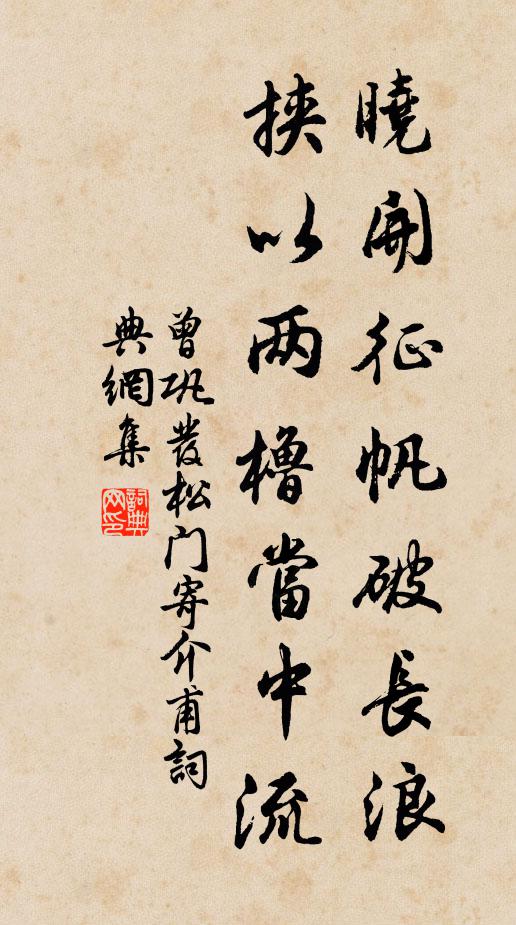 曉開征帆破長浪
挾以两櫓當中流
曾巩發松门寄介甫詞
典網集
詞典
网印